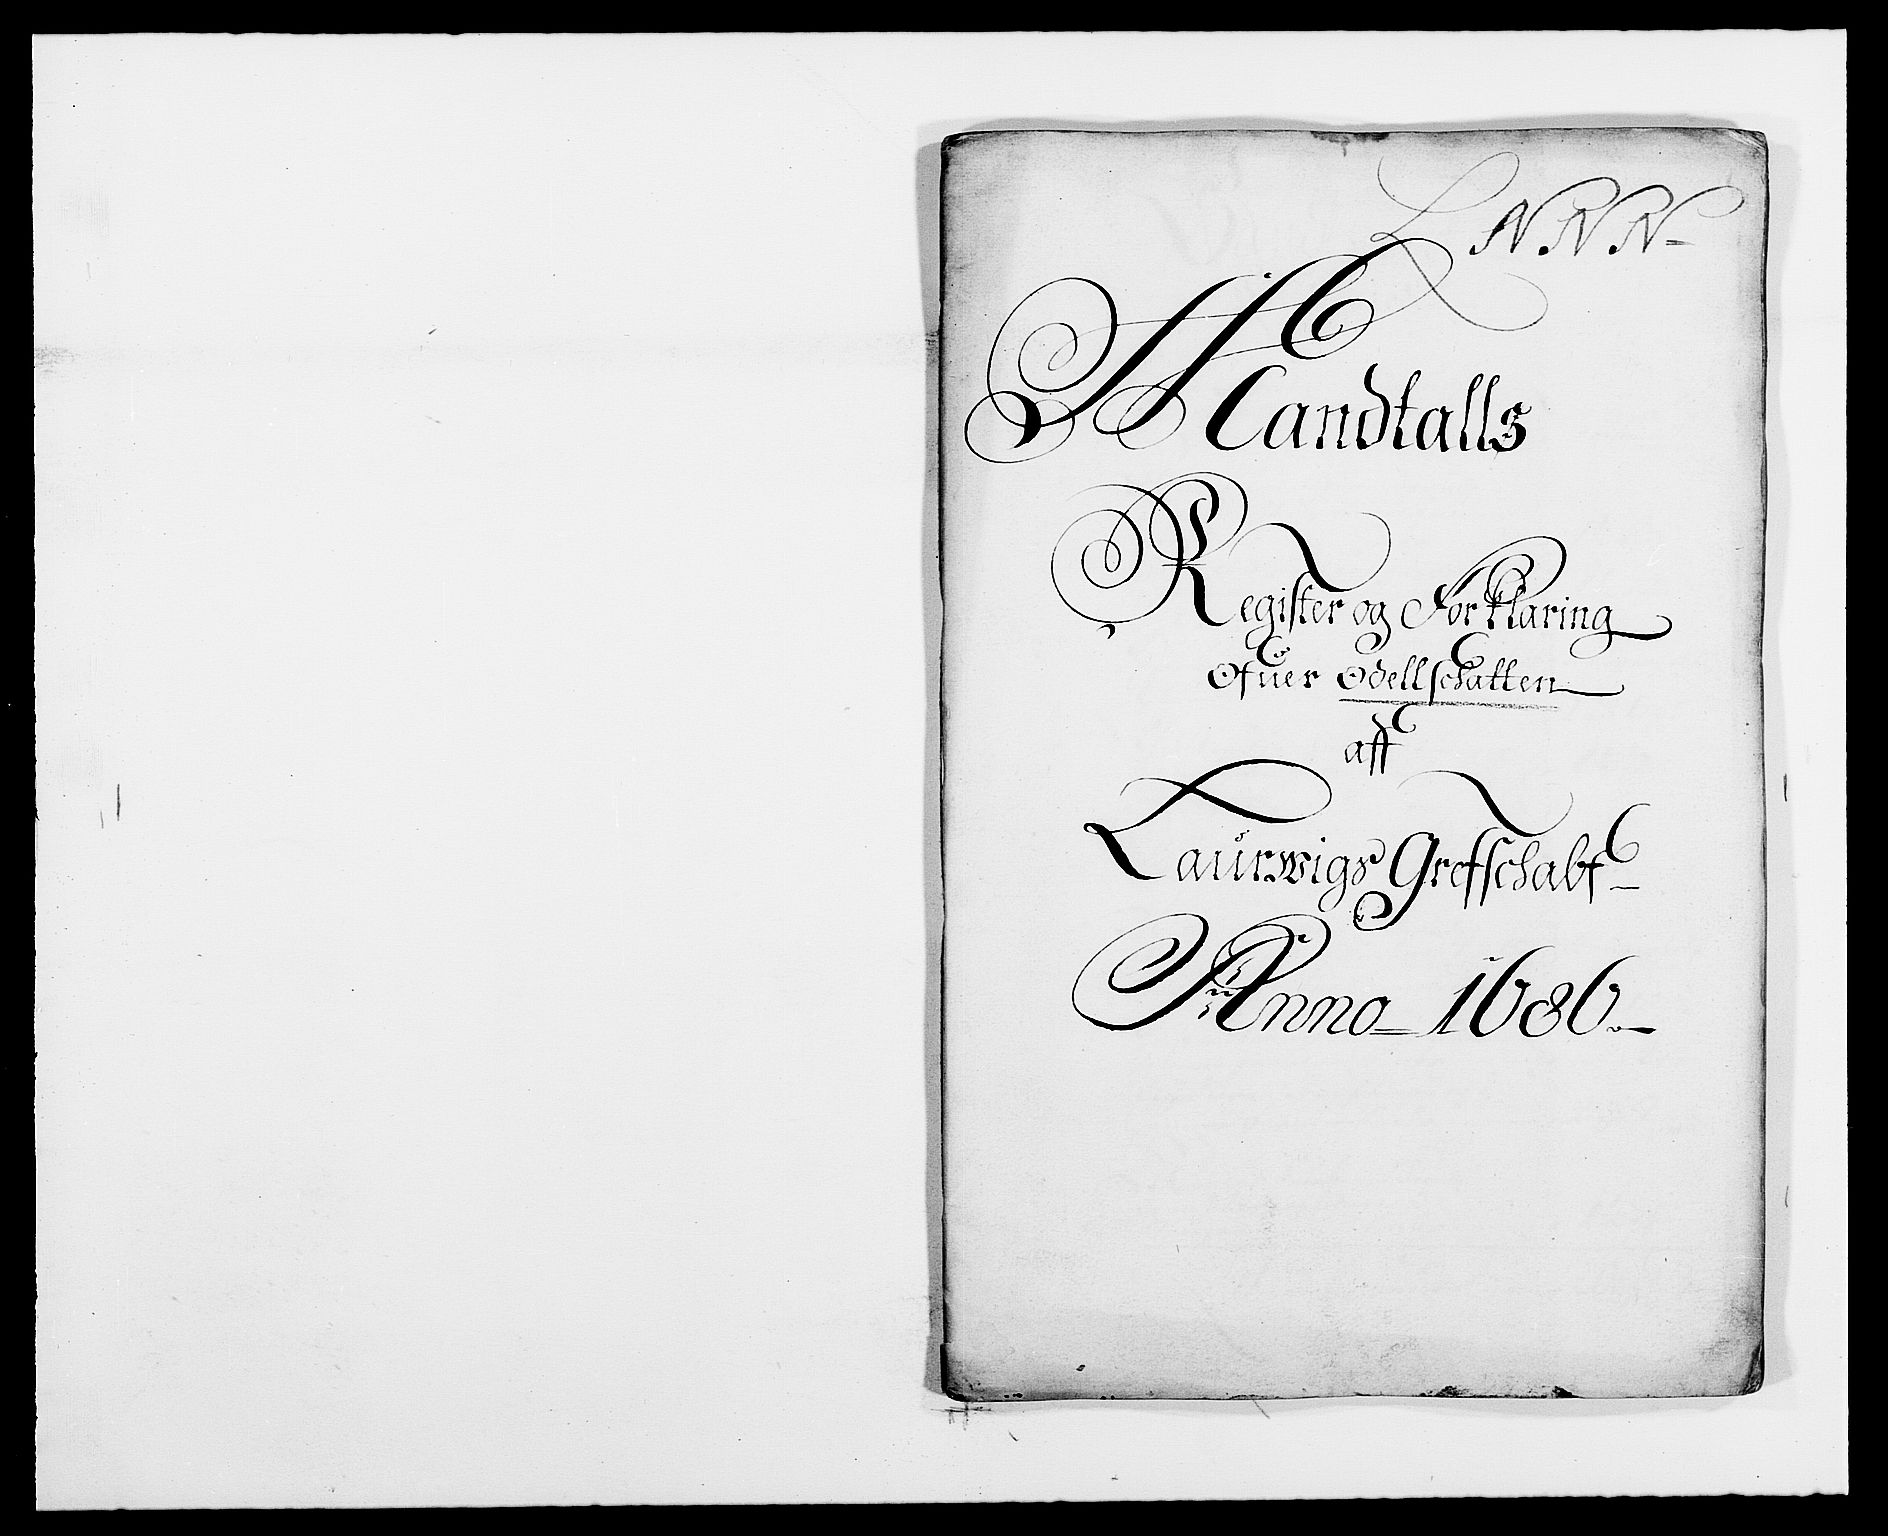 L NNN
Mandtalls
Register og Forklaring
Ofuer Odellschatten
aff
Laurwigs Grefschabf
Anno 1686